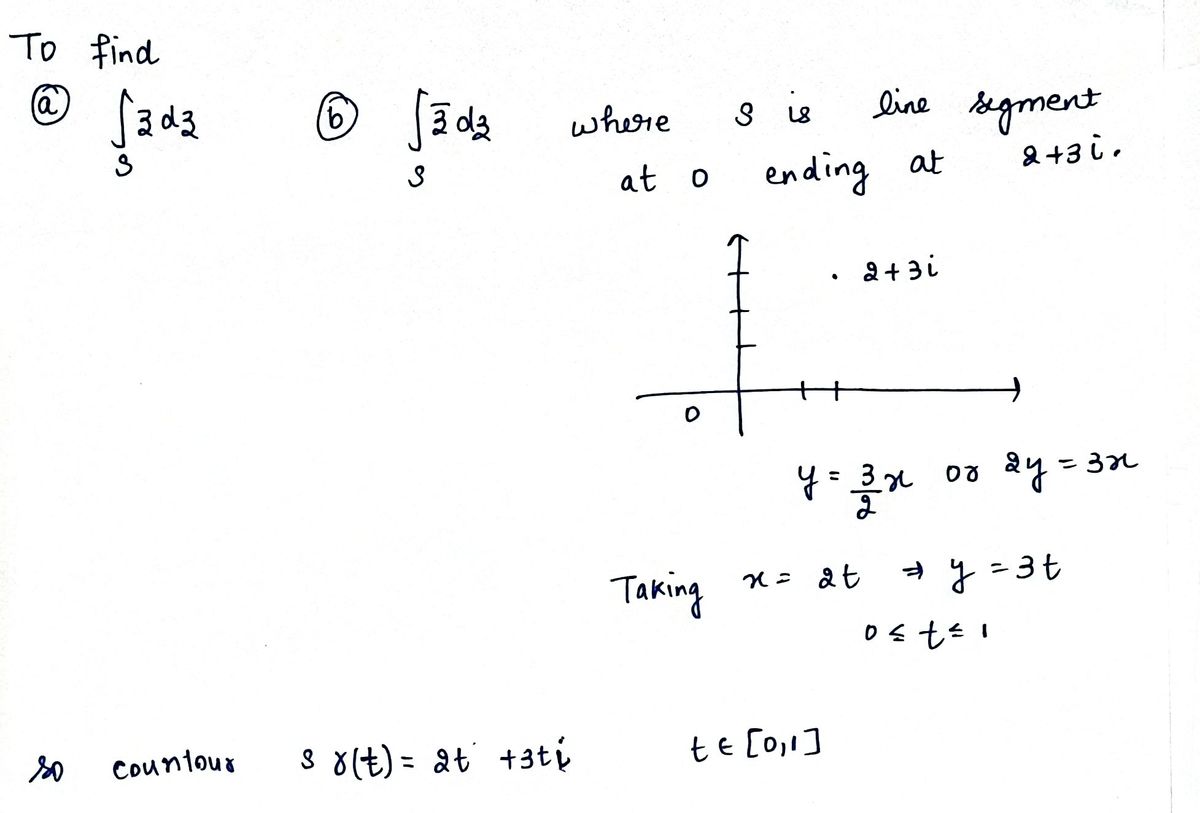 To find
(a) ∫_S z dz (b) ∫_S z̄ dz where S is line segment
at 0 ending at 2+3i.
. 2+3i
0
y = 3/2 x or 2y = 3x
Taking x = 2t ⇒ y = 3t
0 ≤ t ≤ 1
so countour S γ(t) = 2t + 3ti t ∈ [0,1]